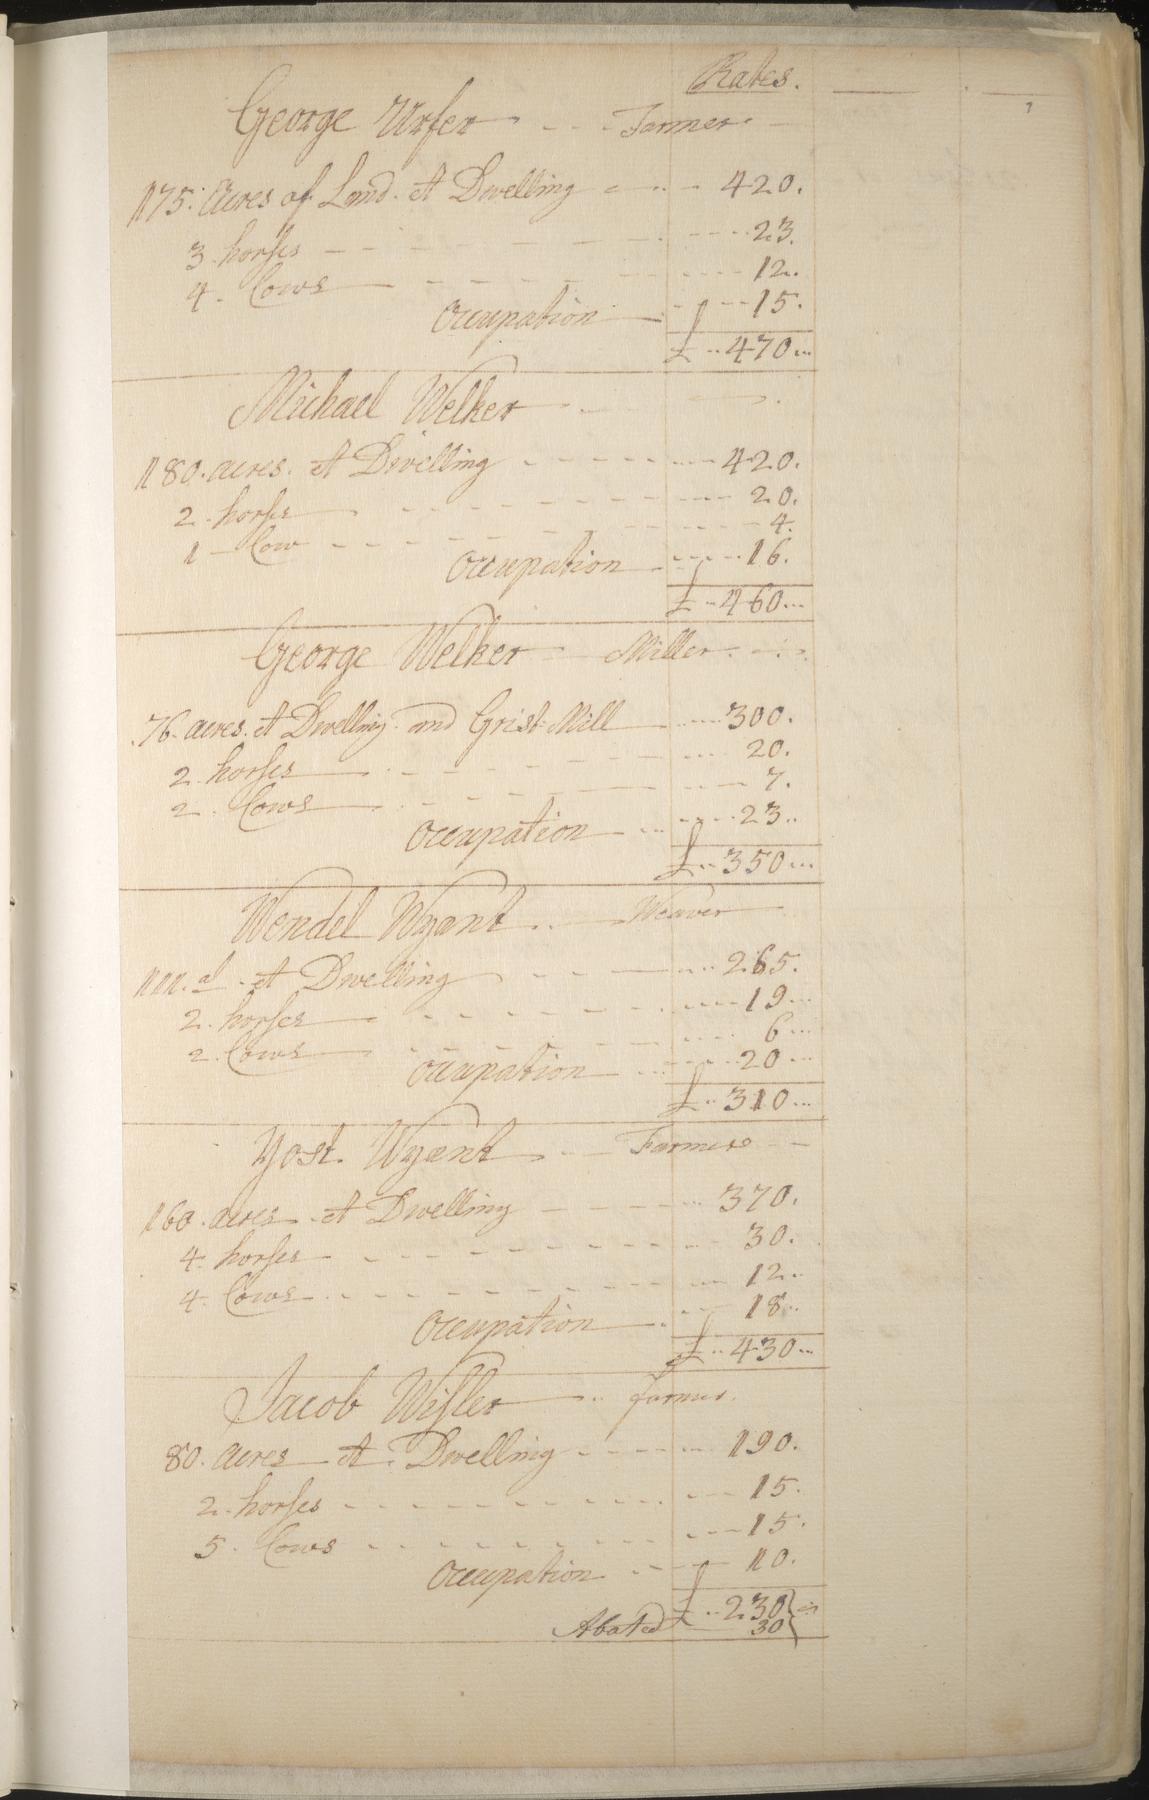 Rates.
George Urfer - - - Farmer
175. Acres of Land. et Dwelling - - - 420.
3 horses - - - 23.
4. Cows - - - 12.
Occupation - - - 15.
£ 470
Michael Welker
180. acres. et Dwelling - - - 420.
2. horses - - - 20.
1 Cow - - - 4.
Occupation - - - 16.
£ 460
George Welker Miller
76. acres. et Dwelling and Grist Mill 300.
2 horses - - - 20.
2. Cows - - - 7.
Occupation - - - 23.
£ 350
Wendel Wyant Weaver
111. as et Dwelling - - - 265.
2. horses - - - 19
2. Cows - - - 6
Occupation - - - 20
£ 310
Yost. Wyant Farmer
160. acres et Dwelling - - - 370.
4. horses - - - 30.
4. Cows - - - 12.
Occupation - - - 18.
£ 430
Jacob Wisler farmer.
80. Acres et Dwelling - - - 190.
2. horses - - - 15.
5. Cows - - - 15.
Occupation - - - 10.
£ 230
Abated 30